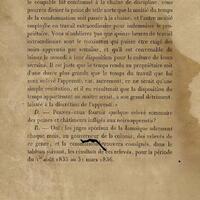 le coupable est condamné à la chaîne de discipline, vous
pourrez diviser la peine de telle sorte que la moitié du temps
de la condamnation soit passée à la chaîne, et l'autre moitié
employée en travail extraordinaire pour indemniser le pro-
priétaire. Vous n'oublierez pas que quinze heures de travail
extraordinaire sont le maximum qui puisse être exigé des
noirs apprentis par semaine, et qu'il est convenable de
laisser le samedi à leur disposition pour la culture de leurs
terrains. Il est juste que le temps rendu au propriétaire soit
d'une durée plus grande que le temps du travail que lui
avait enlevé l'apprenti, car, autrement, ce ne serait qu'une
simple restitution, et il en résulterait que la disposition du
temps appartenant au maître serait, à son grand détriment,
laissée à la discrétion de l'apprenti. »
D. — Pouvez-vous fournir quelque relevé sommaire
des peines et châtiments infligés aux noirs apprentis?
R. — Oui; les juges spéciaux de la Jamaïque adressent
chaque mois, au gouverneur de la colonie, des relevés de
ce genre, et la commission trouvera consignés, dans le
tableau suivant, les résultats de ces relevés, pour la période
du 1er août 1835 au 31 mars 1836.